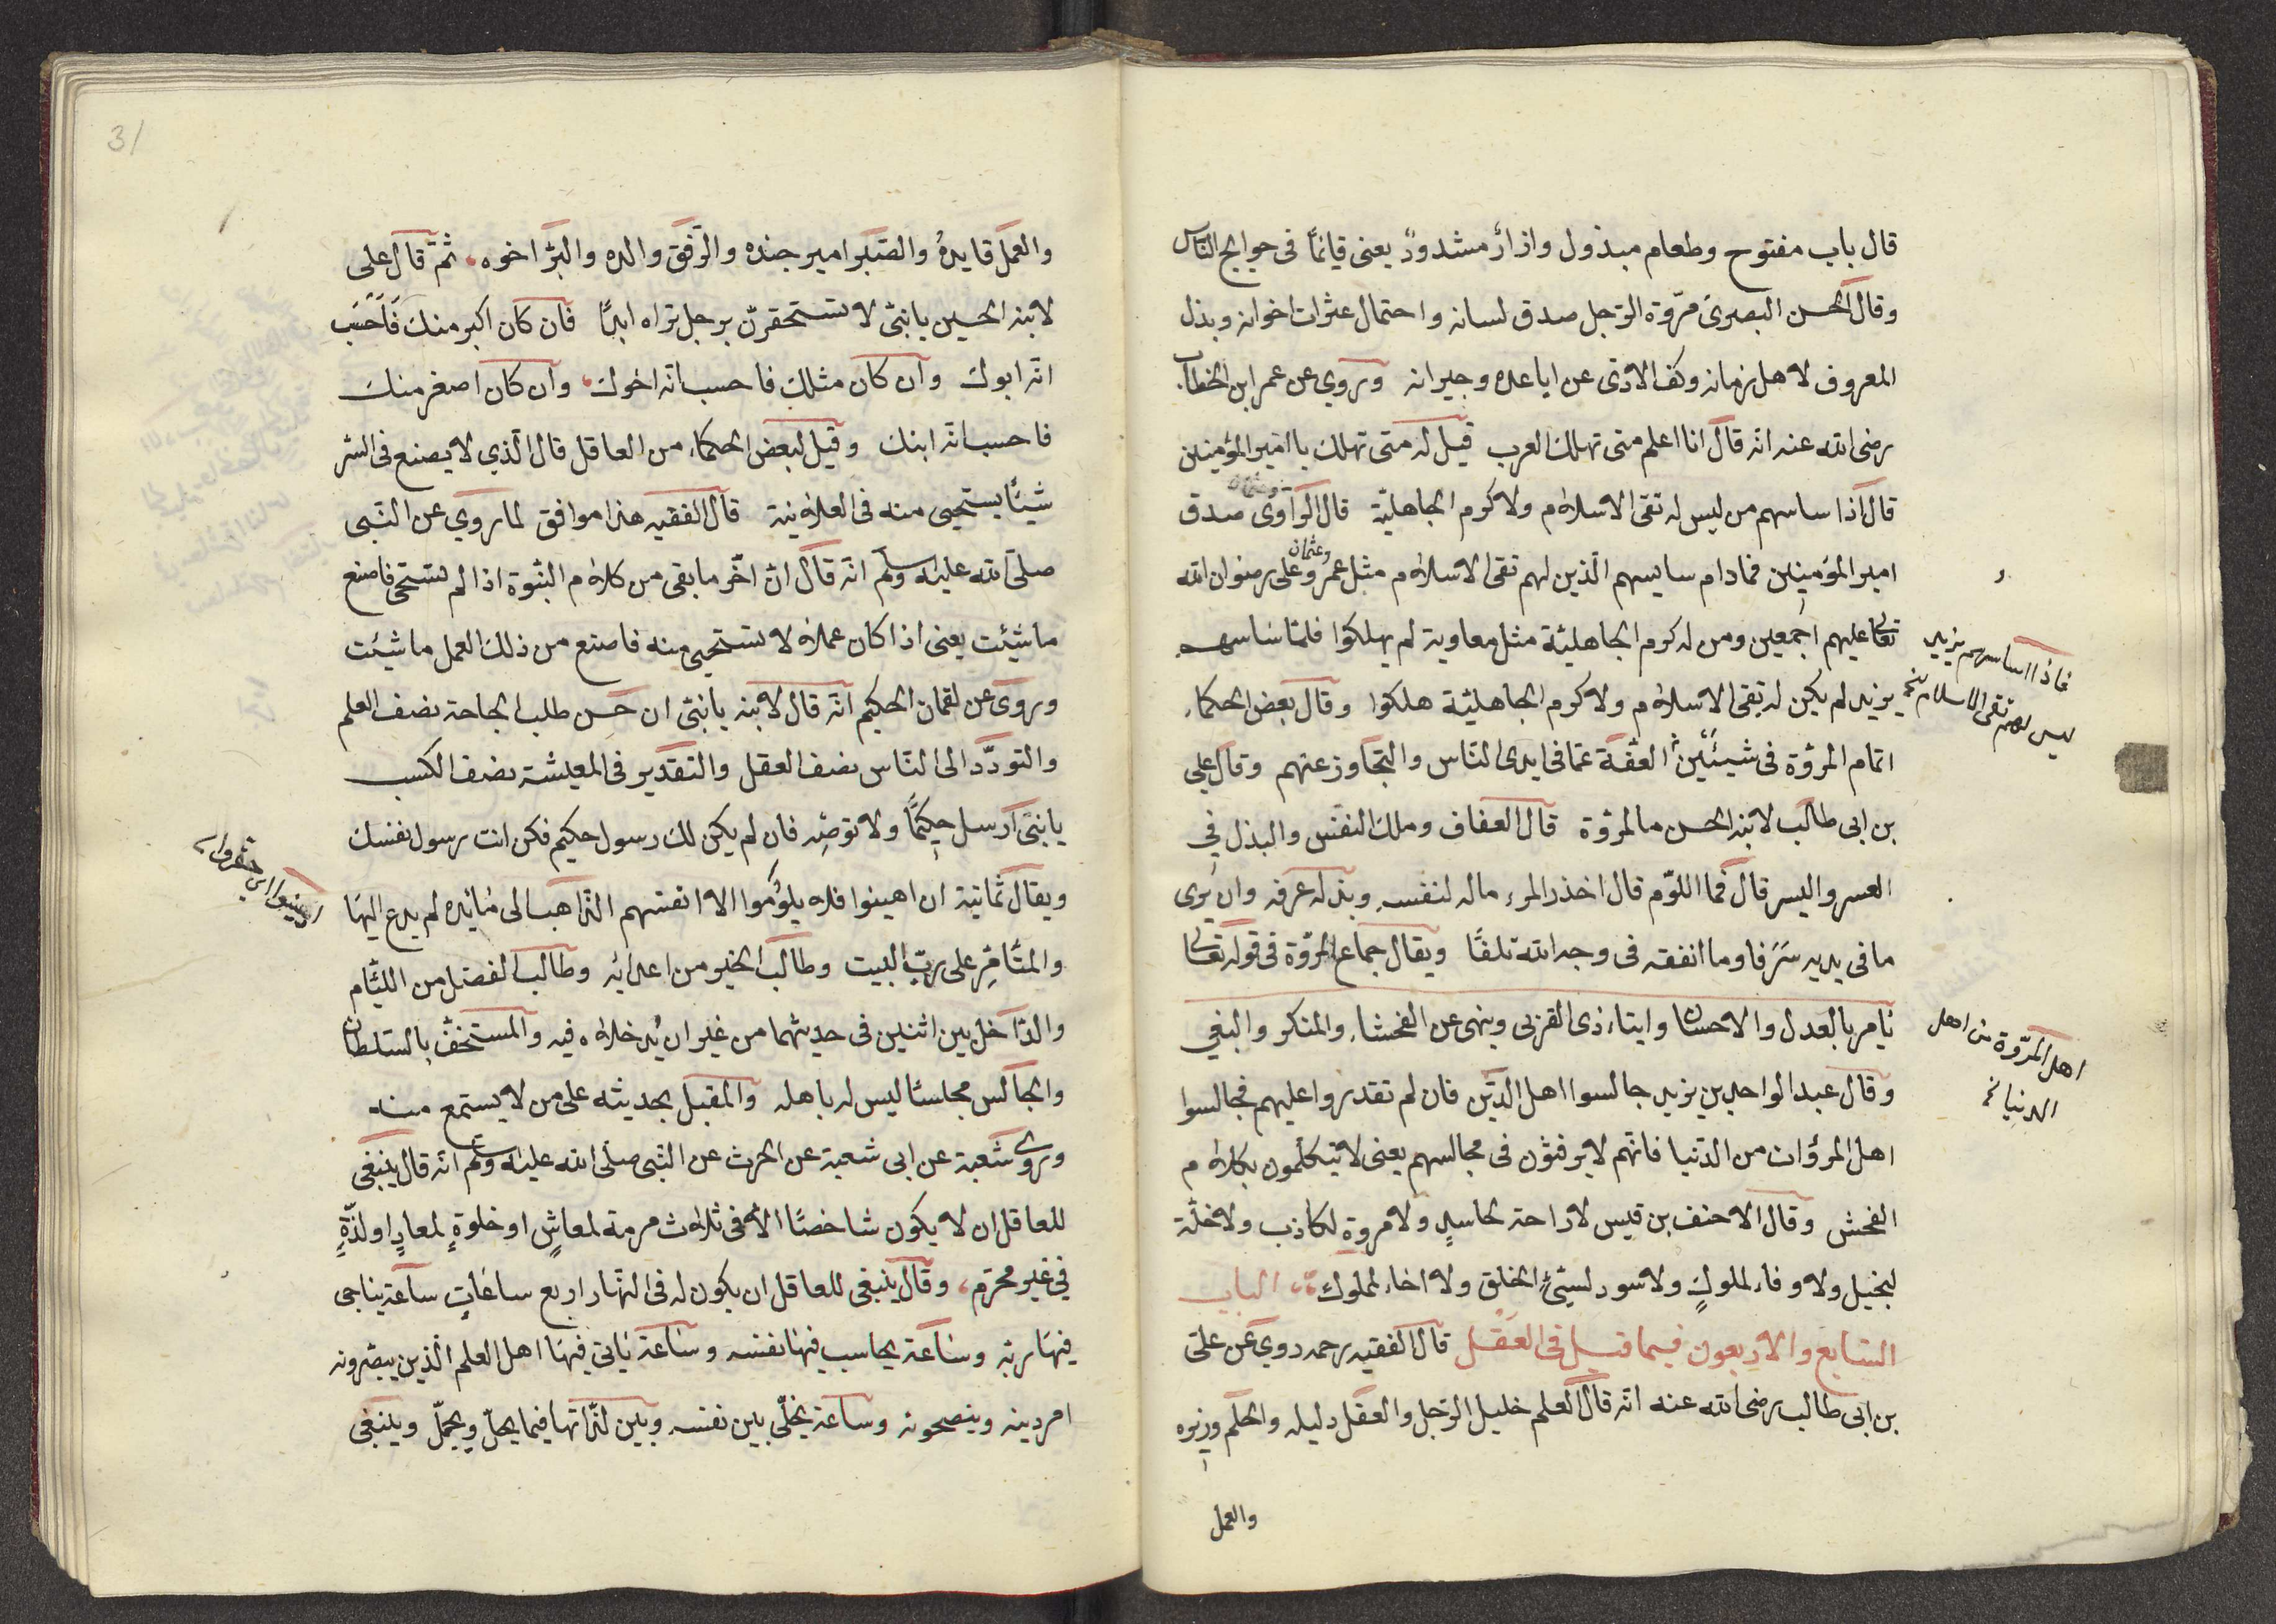 قال باب مفتوح وطعام مبذول وازار مشدودٌ يعنى قائماً فى حوايج الناس
وقال الحسن البصرىّ مرّوة الرّجل صدق لسانه واحتمال عثرات اخوانه وبذل
المعروف لاهل زمانه وكف الاذى عن اباعده وجيرانه وروي عن عمر ابن الخطاب
رضى الله عنه انّه قال انا اعلم متى تهلك العرب قيل له متى تهلك يا امير المؤمنين
قال اذا ساسهم من ليس له تقى الاسلام ولا كرم الجاهليّة قال الرّاوى صدق
امير المؤمنين فمادام سايسهم الّذين لهم تقى الاسلام مثل عمر وعثمان وعلى رضوان الله
تعالى عليهم اجمعين ومن له كرم الجاهليّة مثل معاوية لم يهلكوا فلمّا ساسهم
يزيد لم يكن له تقى الاسلام ولا كرم الجاهليّة هلكوا وقال بعض الحكماء
اتمام المرؤة فى شيئين العفّة عمّا فى ايدى النّاس والتّجاوز عنهم وقال على
بن ابى طالب لابنه الحسن ما المرؤة قال العفاف وملك النفس والبذل فى
العسر واليسر قال فما اللوّم قال اخذ المرء ماله لنفسه وبذله عرفه وان يرى
ما فى يديه سَرَفا وما انفقه فى وجه الله تلفًا ويقال جماع المرّوة فى قوله تعالى
يأمر بالعدل والاحسان وايتاء ذى القربى وينهى عن الفحشاء والمنكر والبغي
وقال عبد الواحد بن يزيد جالسوا اهل الدّين فان لم تقدروا عليهم فجالسوا
اهل المرؤات من الدّنيا فانّهم لا يرفثون فى مجالسهم يعنى لا يتكلّمون بكلام
الفحش وقال الاحنف بن قيس لا راحة لحاسدٍ ولا مروة لكاذب ولا خلّة
لبخيل ولا وفاء لملوكٍ ولا سود لسيّئ الخلق ولا اخاء لملوك الباب
السّابع والاربعون فيما قيل فى العَقل قال الفقيه رحمه روي عن علىّ
بن ابى طالب رضى الله عنه انّه قال العلم خليل الرّجل والعقل دليله والحلم وزيره
والعمل
فاذا ساسهم يزيد
ليس لهم تقى الاسلام
اهل المرّوة من اهل
الدنيا
31
والعمل قايدهُ والصّبر امير جنده والرّفق والده والبرّ اخوه ثمّ قال على
لابنه الحسين يا بنىّ لا تستحقرنّ برجل تراه ابدًا فان كان اكبر منك فَاَحْسَب
انّه ابوك وان كان مثلك فاحسب انّه اخوك وان كان اصغر منك
فاحسب انّه ابنك وقيل لبعض الحكماء من العاقل قال الّذي لا يصنع فى السّر
شيئًا يستحيى منه فى العلانية قال الفقيه هذا موافق لما روي عن النّبى
صلّى الله عليه وسلم انّه قال انّ اخّر ما بقى من كلام النبّوة اذا لم تستحى فاصنع
ما شيئت يعنى اذا كان عملاً لا تستحيى منه فاصنع من ذلك العمل ما شيئت
وروى عن لقمان الحكيم انّه قال لابنه يا بنىّ ان حَسن طلب الحاجة نصف العلم
والتّودّد الى النّاس نصف العقل والتقدير فى المعيشة نصف الكسب
يا بنىّ ارسل حكيمًا ولا توصِه فان لم يكن لك رسول حكيم فكن انت رسول نفسك
ويقال ثمانية ان اهينوا فلا يلوُموا الا انفسهم الذّاهب الى مائده لم يدع اليها
والمتأمّر على ربّ البيت وطالب الخير من اعدائه وطالب الفضل من اللئام
والدّاخل بين اثنين فى حديثهما من غير ان يُدخلاه فيه والمستخفّ بالسّلطان
والجالس مجلسًا ليس له باهل والمقبل بحديثه على من لا يستمع منه
وروى شعبة عن ابى شعبة عن الحرث عن النّبى صلّى الله عليه وسلم انّه قال ينبغى
للعاقل ان لا يكون شاخصًا الا فى ثلاث مرمة لمعاشٍ او خلوةٍ لمعادٍ او لذّةٍ
فى غير محرّم وقال ينبغى للعاقل ان يكون له فى النّهار اربع ساعاتٍ ساعة يناجى
فيها ربّه وساعة يحاسب فيها نفسه وساعة ياتى فيها اهل العلم الّذين يبصّرونه
امر دينه وينصحونه وساعة يخلّى بين نفسه وبين لذّاتها فيما يحلّ ويجمّل وينبغى